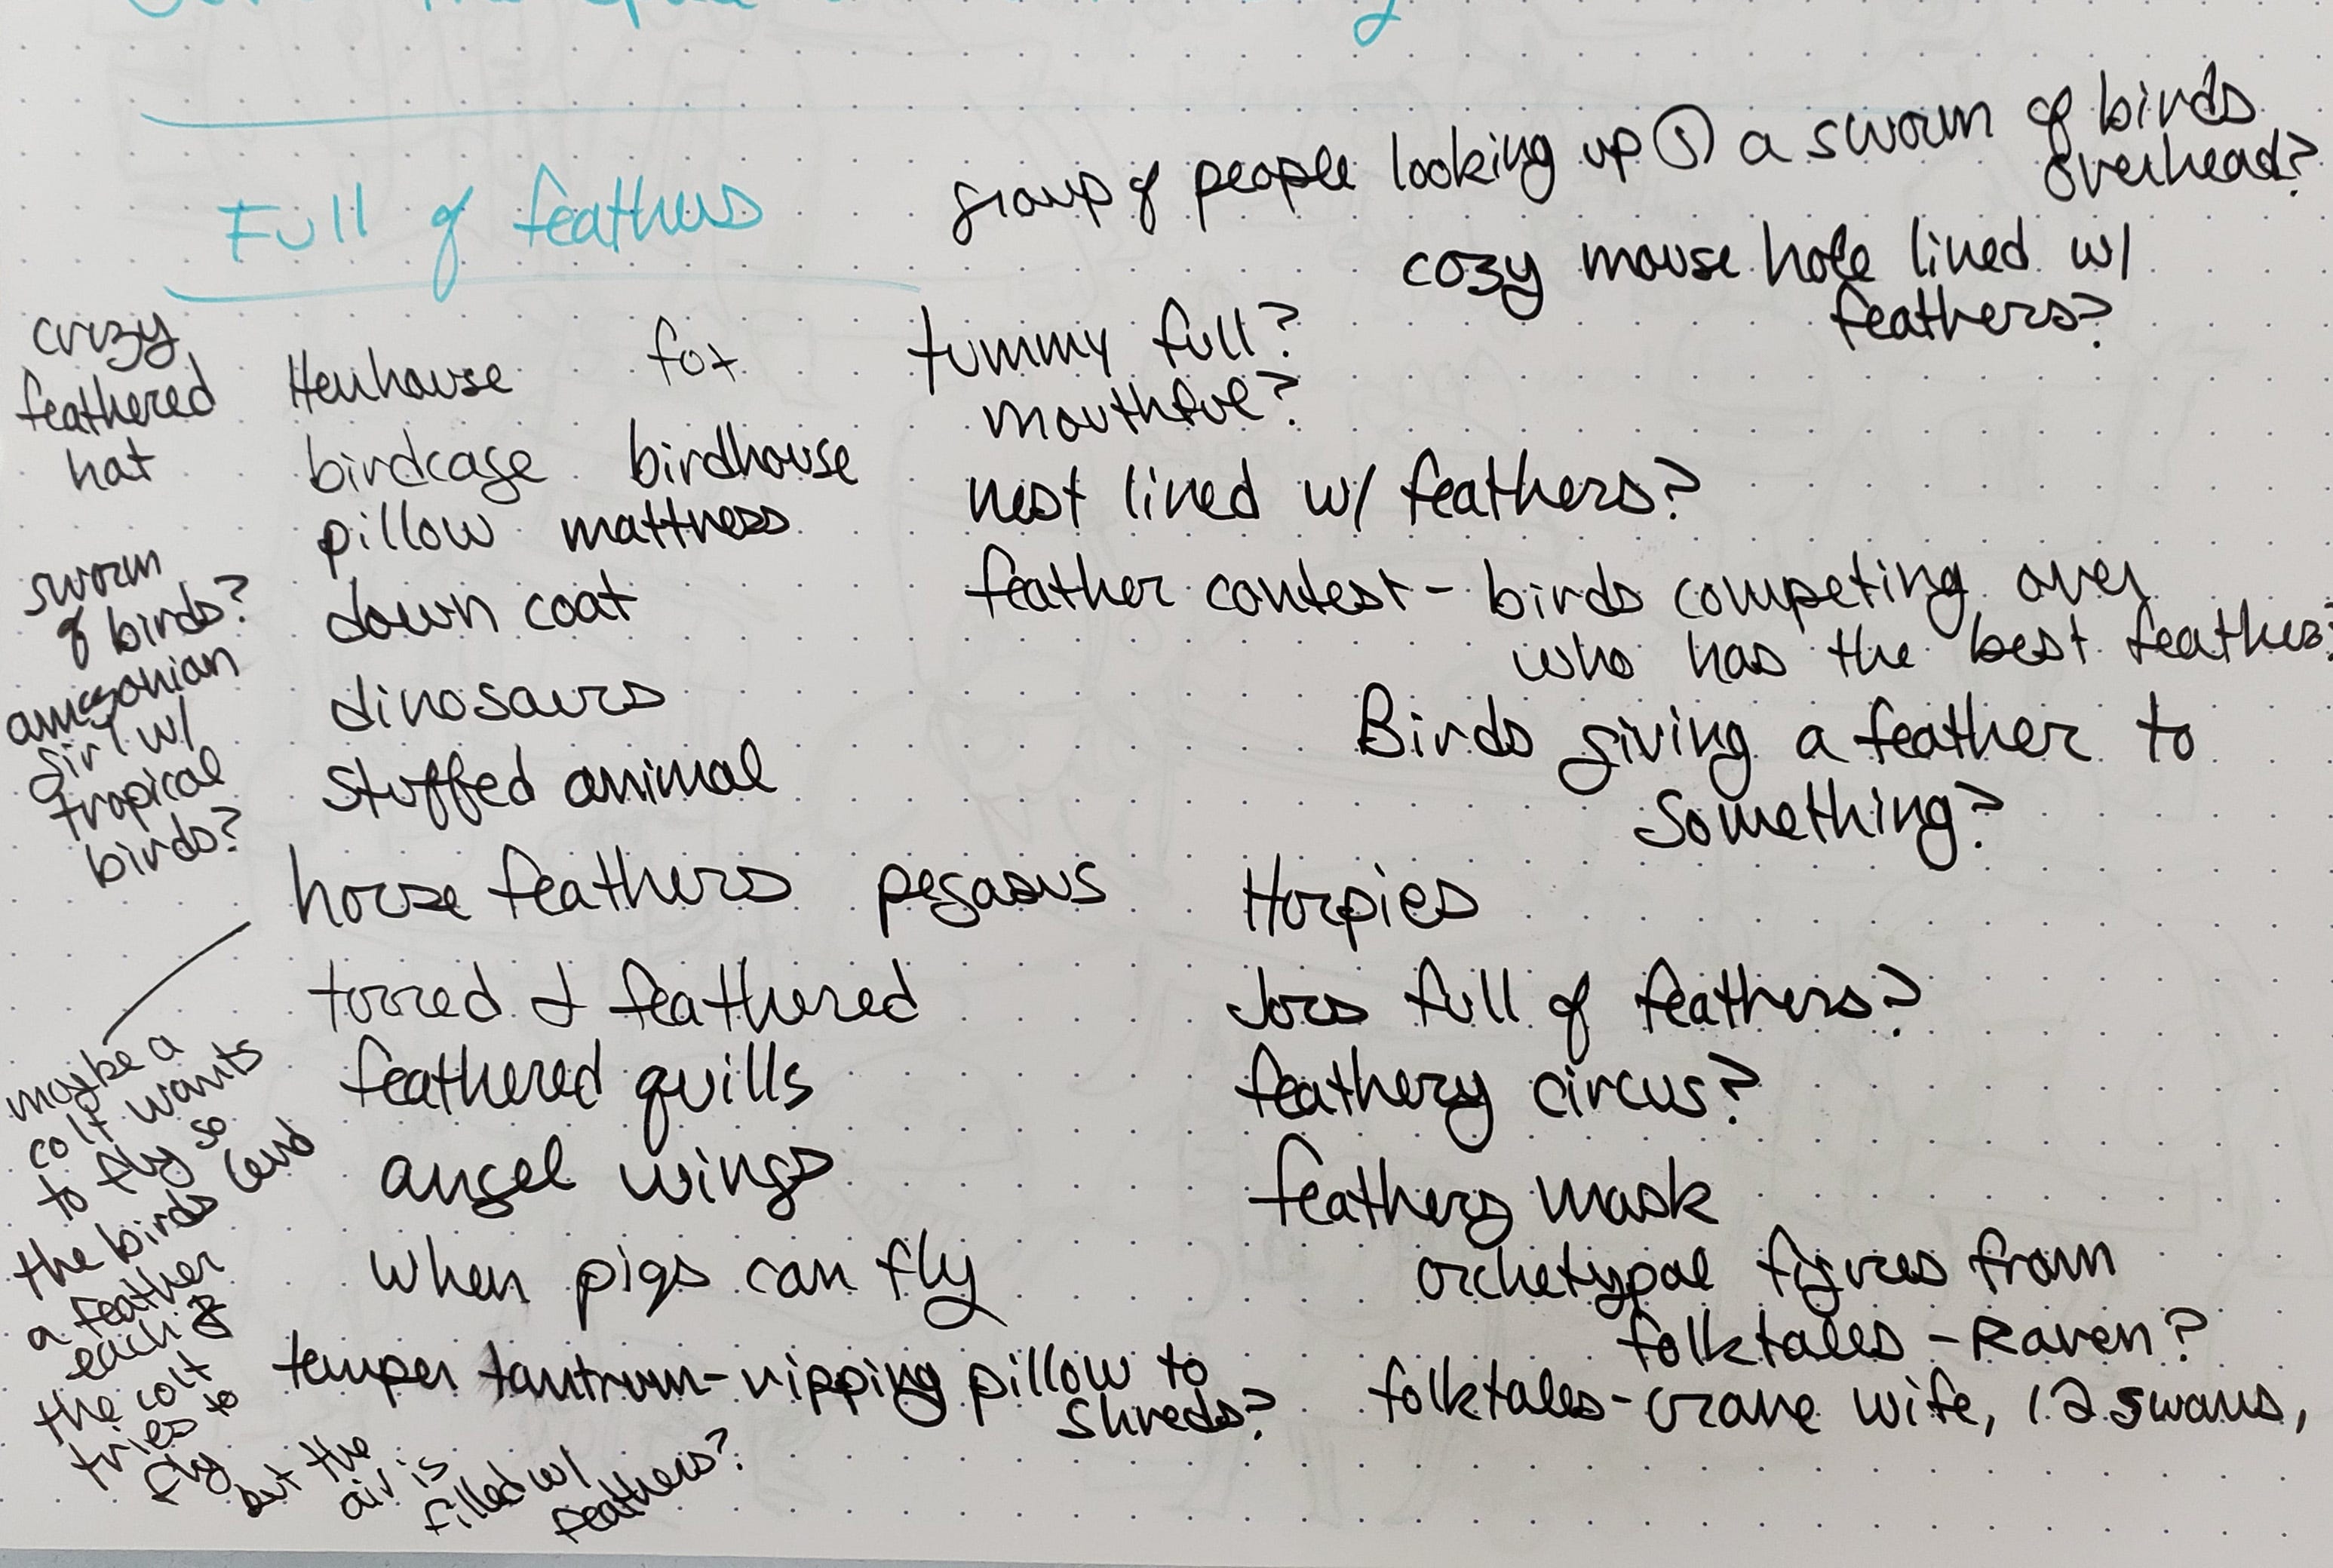 Full of feathers
group of people looking up @ a sworm of birds
overhead?
cozy mouse hole lined w/
feathers?
crazy
feathered
hat
sworm
of birds?
amazonian
girl w/
tropical
birds?
Henhouse fox
birdcage birdhouse
pillow mattress
down coat
dinosaurs
stuffed animal
tummy full?
mouthful?
nest lined w/ feathers?
feather contest - birds competing over
who has the best feathers?
Birds giving a feather to
something?
horse feathers pegasus
tarred & feathered
feathered quills
angel wings
when pigs can fly
temper tantrum - ripping pillow to
shreds?
Harpies
Jars full of feathers?
feathery circus?
feathery mask
archetypal figures from
folktales - Raven?
folktales - crane wife, 12 swans,
maybe a
colt wants
to fly so
the birds lend
a feather
each &
the colt
tries to
fly
but the
air is
filled w/
feathers?